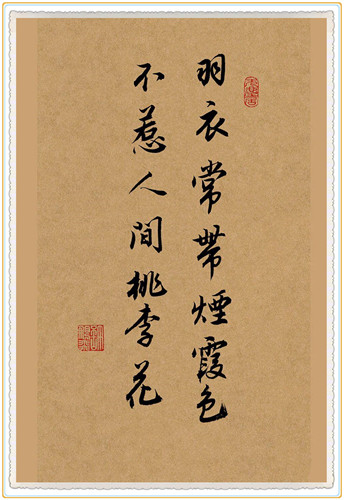 羽衣常帶煙霞色
不惹人間桃李花